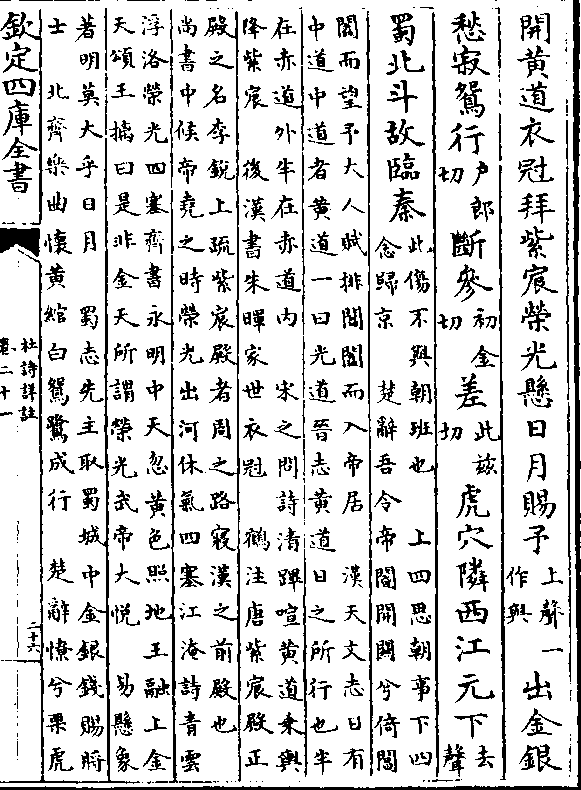 開黄道衣冠拜紫宸榮光懸日月賜予上聲一作與出金銀
愁寂鴛行戶郎切斷參初金切差此兹切虎穴隣西江元下去聲
蜀北斗故臨秦
此傷不與朝班也 上四思朝事下四
念歸京 楚辭吾令帝閽開闗兮倚閶
闔而望予大人賦排閶闔而入帝居 漢天文志日有
中道中道者黄道一曰光道晉志黄道日之所行也半
在赤道外半在赤道内 宋之問詩清蹕喧黄道乘輿
降紫宸 後漢書朱暉家世衣冠 鶴注唐紫宸殿正
殿之名李銳上疏紫宸殿者周之路寢漢之前殿也
尚書中候帝堯之時榮光出河休氣四塞江淹詩青雲
浮洛榮光四塞齊書永明中天忽黄色照地王融上金
天頌王摛曰是非金天所謂榮光武帝大悦 易懸象
著明莫大乎日月 蜀志先主取蜀城中金銀錢賜將
士 北齊樂曲懷黄綰白鴛鷺成行 楚辭憭兮栗虎
欽定四庫全書
杜詩詳註
卷二十一
二十六